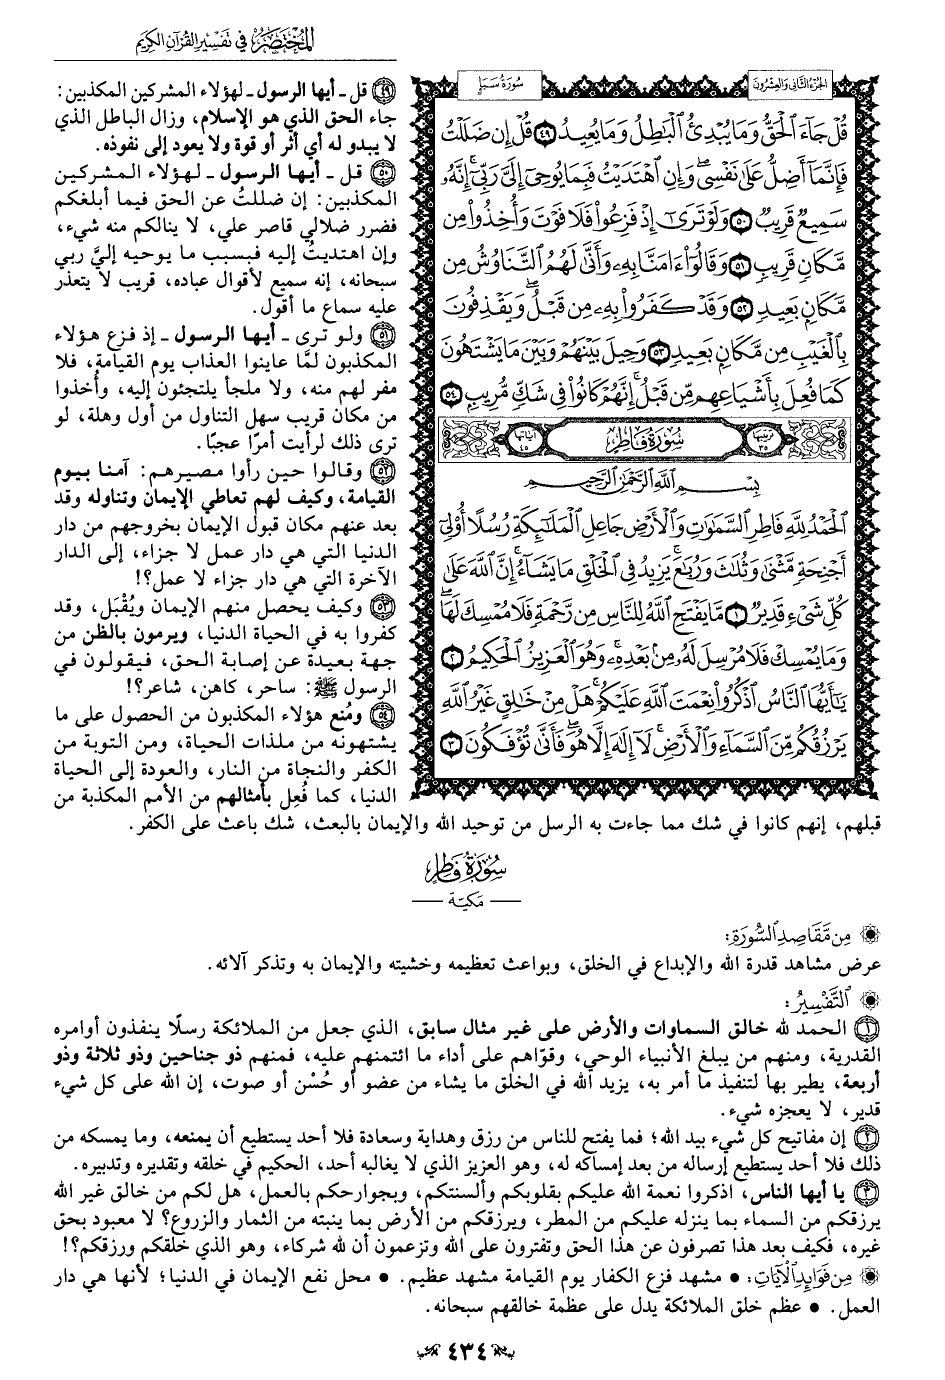 المختصر في تفسير القرآن الكريم
الجزء الثاني والعشرون
سورة سبإ
قُلْ جَآءَ ٱلْحَقُّ وَمَا يُبْدِئُ ٱلْبَٰطِلُ وَمَا يُعِيدُ ٤٩ قُلْ إِن ضَلَلْتُ
فَإِنَّمَآ أَضِلُّ عَلَىٰ نَفْسِى ۖ وَإِنِ ٱهْتَدَيْتُ فَبِمَا يُوحِىٓ إِلَىَّ رَبِّىٓ ۚ إِنَّهُۥ
سَمِيعٌ قَرِيبٌ ٥٠ وَلَوْ تَرَىٰٓ إِذْ فَزِعُوا۟ فَلَا فَوْتَ وَأُخِذُوا۟ مِن
مَّكَانٍ قَرِيبٍ ٥١ وَقَالُوٓا۟ ءَامَنَّا بِهِۦ وَأَنَّىٰ لَهُمُ ٱلتَّنَاوُشُ مِن
مَّكَانٍۭ بَعِيدٍ ٥٢ وَقَدْ كَفَرُوا۟ بِهِۦ مِن قَبْلُ ۖ وَيَقْذِفُونَ
بِٱلْغَيْبِ مِن مَّكَانٍۭ بَعِيدٍ ٥٣ وَحِيلَ بَيْنَهُمْ وَبَيْنَ مَا يَشْتَهُونَ
كَمَا فُعِلَ بِأَشْيَاعِهِم مِّن قَبْلُ ۚ إِنَّهُمْ كَانُوا۟ فِى شَكٍّ مُّرِيبٍۭ ٥٤
ترتيبها ٣٥ سورة فاطر آياتها ٤٥
بِسْمِ ٱللَّهِ ٱلرَّحْمَٰنِ ٱلرَّحِيمِ
ٱلْحَمْدُ لِلَّهِ فَاطِرِ ٱلسَّمَٰوَٰتِ وَٱلْأَرْضِ جَاعِلِ ٱلْمَلَٰٓئِكَةِ رُسُلًا أُو۟لِىٓ
أَجْنِحَةٍ مَّثْنَىٰ وَثُلَٰثَ وَرُبَٰعَ ۚ يَزِيدُ فِى ٱلْخَلْقِ مَا يَشَآءُ ۚ إِنَّ ٱللَّهَ عَلَىٰ
كُلِّ شَىْءٍ قَدِيرٌ ١ مَّا يَفْتَحِ ٱللَّهُ لِلنَّاسِ مِن رَّحْمَةٍ فَلَا مُمْسِكَ لَهَا ۖ
وَمَا يُمْسِكْ فَلَا مُرْسِلَ لَهُۥ مِنۢ بَعْدِهِۦ ۚ وَهُوَ ٱلْعَزِيزُ ٱلْحَكِيمُ ٢
يَٰٓأَيُّهَا ٱلنَّاسُ ٱذْكُرُوا۟ نِعْمَتَ ٱللَّهِ عَلَيْكُمْ ۚ هَلْ مِنْ خَٰلِقٍ غَيْرُ ٱللَّهِ
يَرْزُقُكُم مِّنَ ٱلسَّمَآءِ وَٱلْأَرْضِ ۚ لَآ إِلَٰهَ إِلَّا هُوَ ۖ فَأَنَّىٰ تُؤْفَكُونَ ٣
٤٩ قل ـ أيها الرسول ـ لهؤلاء المشركين المكذبين:
جاء الحق الذي هو الإسلام، وزال الباطل الذي
لا يبدو له أي أثر أو قوة ولا يعود إلى نفوذه.
٥٠ قل ـ أيها الرسول ـ لهؤلاء المشركين
المكذبين: إن ضللتُ عن الحق فيما أبلغكم
فضرر ضلالي قاصر علي، لا ينالكم منه شيء،
وإن اهتديتُ إليه فبسبب ما يوحيه إليَّ ربي
سبحانه، إنه سميع لأقوال عباده، قريب لا يتعذر
عليه سماع ما أقول.
٥١ ولو ترى ـ أيها الرسول ـ إذ فزع هؤلاء
المكذبون لمَّا عاينوا العذاب يوم القيامة، فلا
مفر لهم منه، ولا ملجأ يلتجئون إليه، وأُخذوا
من مكان قريب سهل التناول من أول وهلة، لو
ترى ذلك لرأيت أمرًا عجبًا.
٥٢ وقالوا حين رأوا مصيرهم: آمنا بيوم
القيامة، وكيف لهم تعاطي الإيمان وتناوله وقد
بعد عنهم مكان قبول الإيمان بخروجهم من دار
الدنيا التي هي دار عمل لا جزاء، إلى الدار
الآخرة التي هي دار جزاء لا عمل؟!
٥٣ وكيف يحصل منهم الإيمان ويُقْبَل، وقد
كفروا به في الحياة الدنيا، ويرمون بالظن من
جهة بعيدة عن إصابة الحق، فيقولون في
الرسول ﷺ: ساحر، كاهن، شاعر؟!
٥٤ ومُنع هؤلاء المكذبون من الحصول على ما
يشتهونه من ملذات الحياة، ومن التوبة من
الكفر والنجاة من النار، والعودة إلى الحياة
الدنيا، كما فُعِل بأمثالهم من الأمم المكذبة من
قبلهم، إنهم كانوا في شك مما جاءت به الرسل من توحيد الله والإيمان بالبعث، شك باعث على الكفر.
سورة فاطر
— مكية —
من مقاصد السورة:
عرض مشاهد قدرة الله والإبداع في الخلق، وبواعث تعظيمه وخشيته والإيمان به وتذكر آلائه.
التفسير:
١ الحمد لله خالق السماوات والأرض على غير مثال سابق، الذي جعل من الملائكة رسلًا ينفذون أوامره
القدرية، ومنهم من يبلغ الأنبياء الوحي، وقوّاهم على أداء ما ائتمنهم عليه، فمنهم ذو جناحين وذو ثلاثة وذو
أربعة، يطير بها لتنفيذ ما أمر به، يزيد الله في الخلق ما يشاء من عضو أو حُسْن أو صوت، إن الله على كل شيء
قدير، لا يعجزه شيء.
٢ إن مفاتيح كل شيء بيد الله؛ فما يفتح للناس من رزق وهداية وسعادة فلا أحد يستطيع أن يمنعه، وما يمسكه من
ذلك فلا أحد يستطيع إرساله من بعد إمساكه له، وهو العزيز الذي لا يغالبه أحد، الحكيم في خلقه وتقديره وتدبيره.
٣ يا أيها الناس، اذكروا نعمة الله عليكم بقلوبكم وألسنتكم، وبجوارحكم بالعمل، هل لكم من خالق غير الله
يرزقكم من السماء بما ينزله عليكم من المطر، ويرزقكم من الأرض بما ينبته من الثمار والزروع؟ لا معبود بحق
غيره، فكيف بعد هذا تصرفون عن هذا الحق وتفترون على الله وتزعمون أن لله شركاء، وهو الذي خلقكم ورزقكم؟!
من فوائد الآيات: • مشهد فزع الكفار يوم القيامة مشهد عظيم. • محل نفع الإيمان في الدنيا؛ لأنها هي دار
العمل. • عظم خلق الملائكة يدل على عظمة خالقهم سبحانه.
٤٣٤